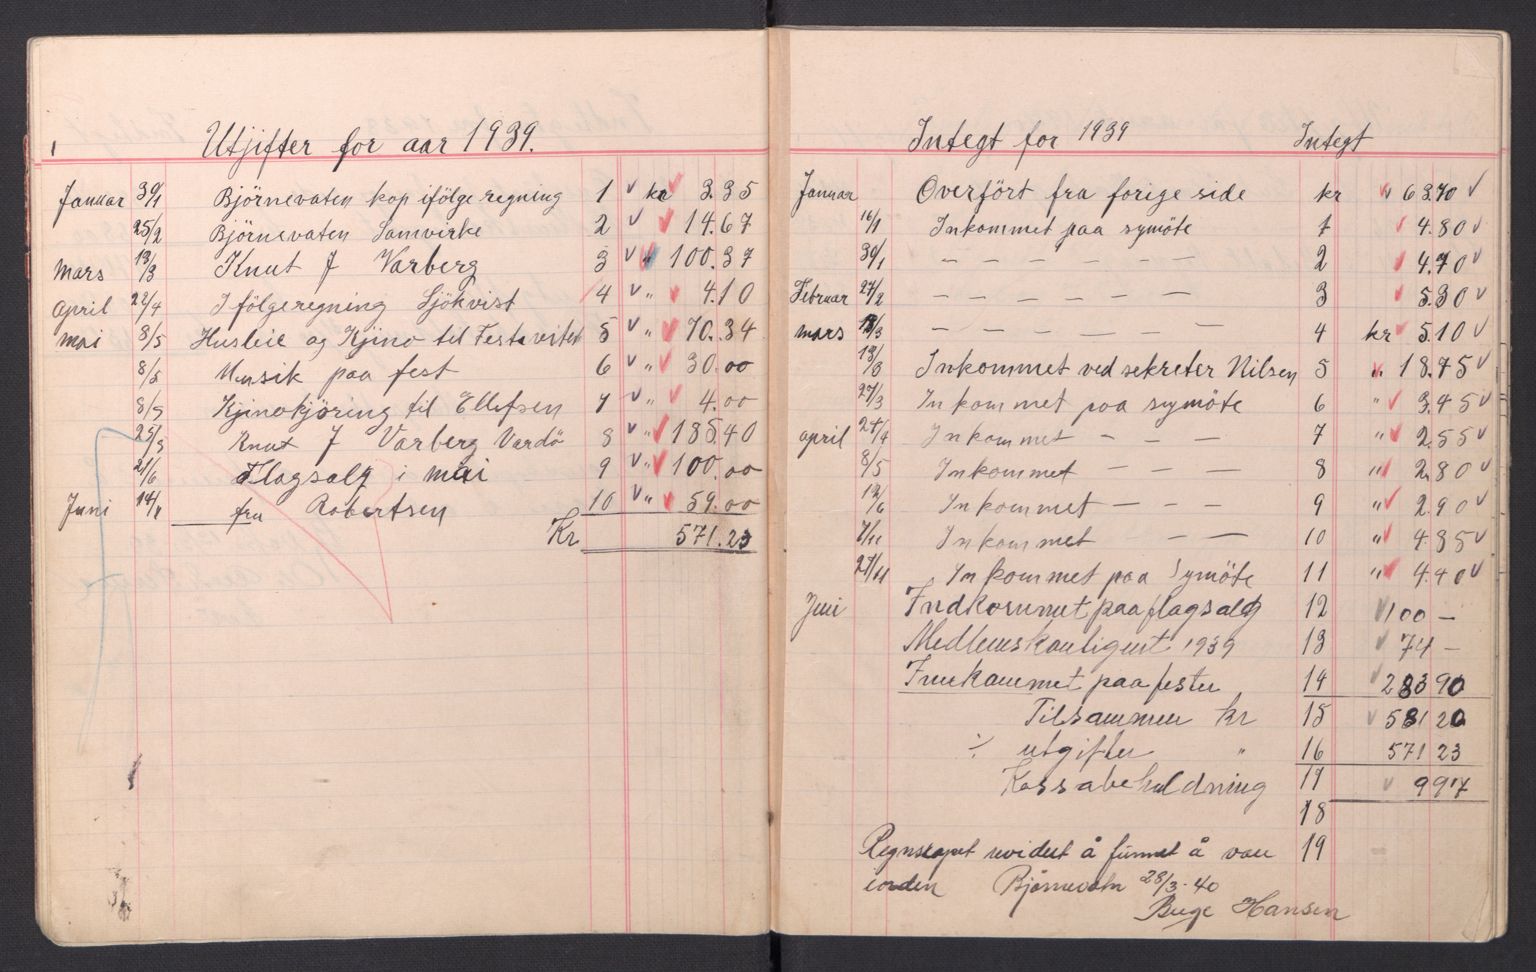 1 Utjifter for aar 1939.
Januar 30/1 Björnevaten kop ifölge regning 1 kr 3.35
25/2 Björnevaten Samvirke 2 14.67
Mars 13/3 Knut J Varberg 3 " 100.37
April 22/4 I fölge regning Sjökvist 4 " 4.10
Mai 8/5 Husleie og Kjino til Festaviteten 5 " 70.34
8/5 Musik paa fest 6 " 30.00
8/5 Kjinokjöring til Ellefsen 7 " 4.00
25/5 Knut J Varberg Vardö 8 " 185.40
21/6 Flagsalg i mai 9 " 100.00
Juni 14/ fru Robertsen 10 " 59.00
Kr 571.23
Integt for 1939 Integt
Januar Overfört fra forige side kr " 63.70
16/1 Inkommet paa symöte 1 4.80
30/1 — — — — — — 2 4.70
Februar 27/2 — — — — — — 3 5.30
Mars 13/3 — — — — — — 4 kr 5.10
13/3 Inkommet ved sekreter Nilsen 5 " 18.75
27/3 Inkommet paa symöte 6 " 3.45
April 24/4 Inkommet — — — 7 " 2.55
8/5 Inkommet — — — 8 " 2.80
12/6 Inkommet — — — 9 " 2.90
7/11 Inkommet — — 10 " 4.85
27/11 Inkommet paa Symöte 11 " 4.40
Juni Indkommet paa flagsalg 12 100 —
Medlemskontigent 1939 13 74 —
Innkommet paa fester 14 283 90
Tilsammen kr 15 581 20
÷ utgifter " 16 571 23
Kassabeholdning 17 9 97
18
Regnskapet revidert å funnet å være 19
iorden Bjørnevatn 28/3-40
Hansen